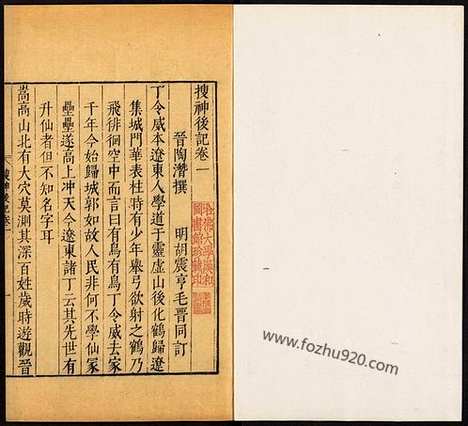 搜神後記卷一
晉陶潛撰 明胡震亨毛晉同訂
丁令威本遼東人學道于靈虛山後化鶴歸遼
集城門華表柱時有少年舉弓欲射之鶴乃
飛徘徊空中而言曰有鳥有鳥丁令威去家
千年今始歸城郭如故人民非何不學仙冢
壘壘遂高上沖天今遼東諸丁云其先世有
升仙者但不知名字耳
嵩高山北有大穴莫測其深百姓歲時遊觀晉
搜神後記卷一
一
哈佛大學漢和
圖書館珍藏印
www.fozhu920.com